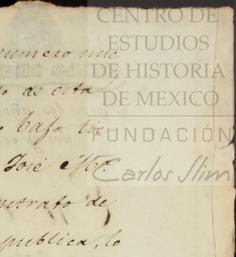 CENTRO DE
ESTUDIOS
DE HISTORIA
DE MEXICO
FUNDACIÓN
Carlos Slim
numero mil
o de esta
bajo
José Ma.
ntrato de
publica, lo